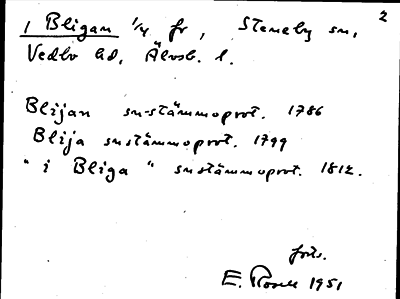 2
i Bligan 1/4 fr, Steneby sn,
Vedbo hd, Älvsb. l.
Blijan sn-stämmoprot. 1786
Blija snstämmoprot. 1799
"i Bliga" snstämmoprot. 1812.
forts.
E. Rosell 1951